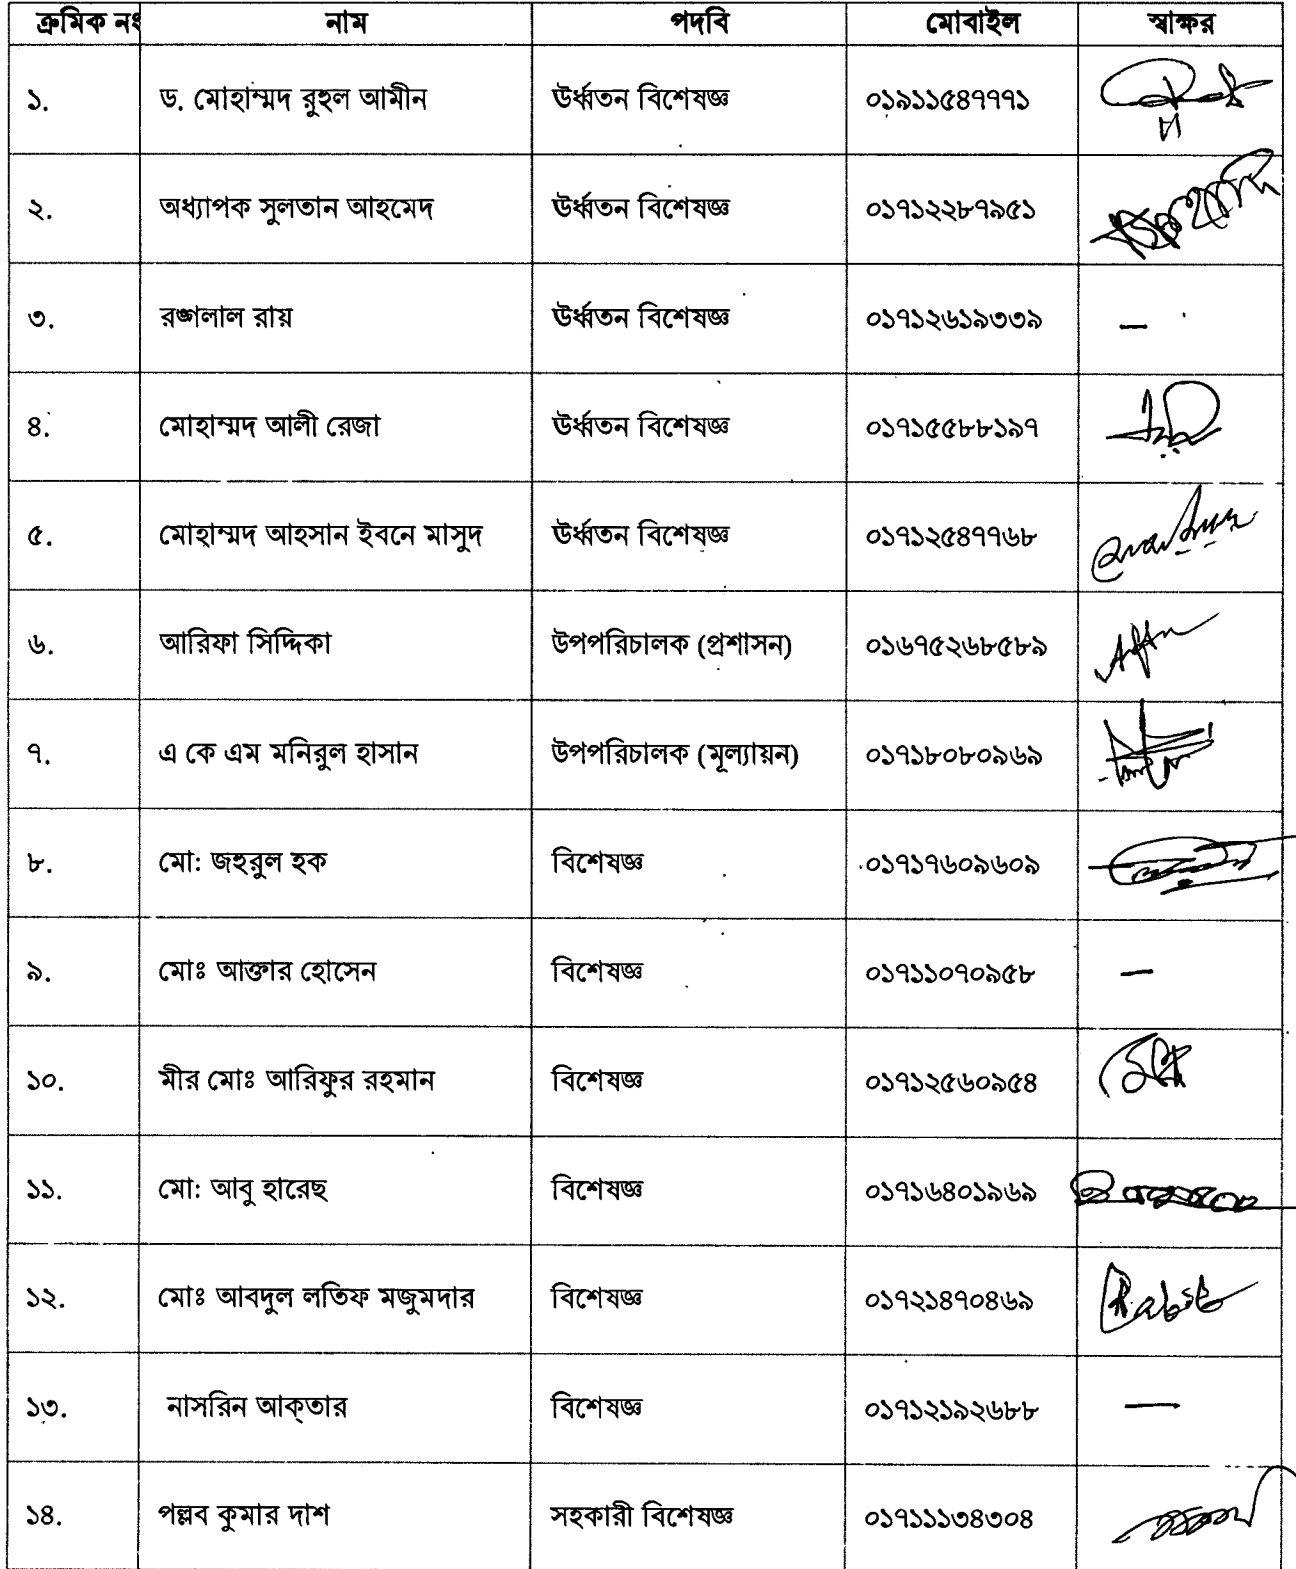 ক্রমিক নং নাম পদবি মোবাইল স্বাক্ষর
১. ড. মোহাম্মদ রুহুল আমীন ঊর্ধ্বতন বিশেষজ্ঞ ০১৯১১৫৪৭৭৭১
২. অধ্যাপক সুলতান আহমেদ ঊর্ধ্বতন বিশেষজ্ঞ ০১৭১২২৮৭৯৫১
৩. রঙ্গলাল রায় ঊর্ধ্বতন বিশেষজ্ঞ ০১৭১২৬১৯৩৩৯ —
৪. মোহাম্মদ আলী রেজা ঊর্ধ্বতন বিশেষজ্ঞ ০১৭১৫৫৮৮১৯৭
৫. মোহাম্মদ আহসান ইবনে মাসুদ ঊর্ধ্বতন বিশেষজ্ঞ ০১৭১২৫৪৭৭৬৮
৬. আরিফা সিদ্দিকা উপপরিচালক (প্রশাসন) ০১৬৭৫২৬৮৫৮৯
৭. এ কে এম মনিরুল হাসান উপপরিচালক (মূল্যায়ন) ০১৭১৮০৮০৯৬৯
৮. মো: জহুরুল হক বিশেষজ্ঞ ০১৭১৭৬০৯৬০৯
৯. মোঃ আক্তার হোসেন বিশেষজ্ঞ ০১৭১১০৭০৯৫৮ —
১০. মীর মোঃ আরিফুর রহমান বিশেষজ্ঞ ০১৭১২৫৬০৯৫৪
১১. মো: আবু হারেছ বিশেষজ্ঞ ০১৭১৬৪০১৯৬৯
১২. মোঃ আবদুল লতিফ মজুমদার বিশেষজ্ঞ ০১৭২১৪৭০৪৬৯
১৩. নাসরিন আক্‌তার বিশেষজ্ঞ ০১৭১২১৯২৬৮৮ —
১৪. পল্লব কুমার দাশ সহকারী বিশেষজ্ঞ ০১৭১১১৩৪৩০৪